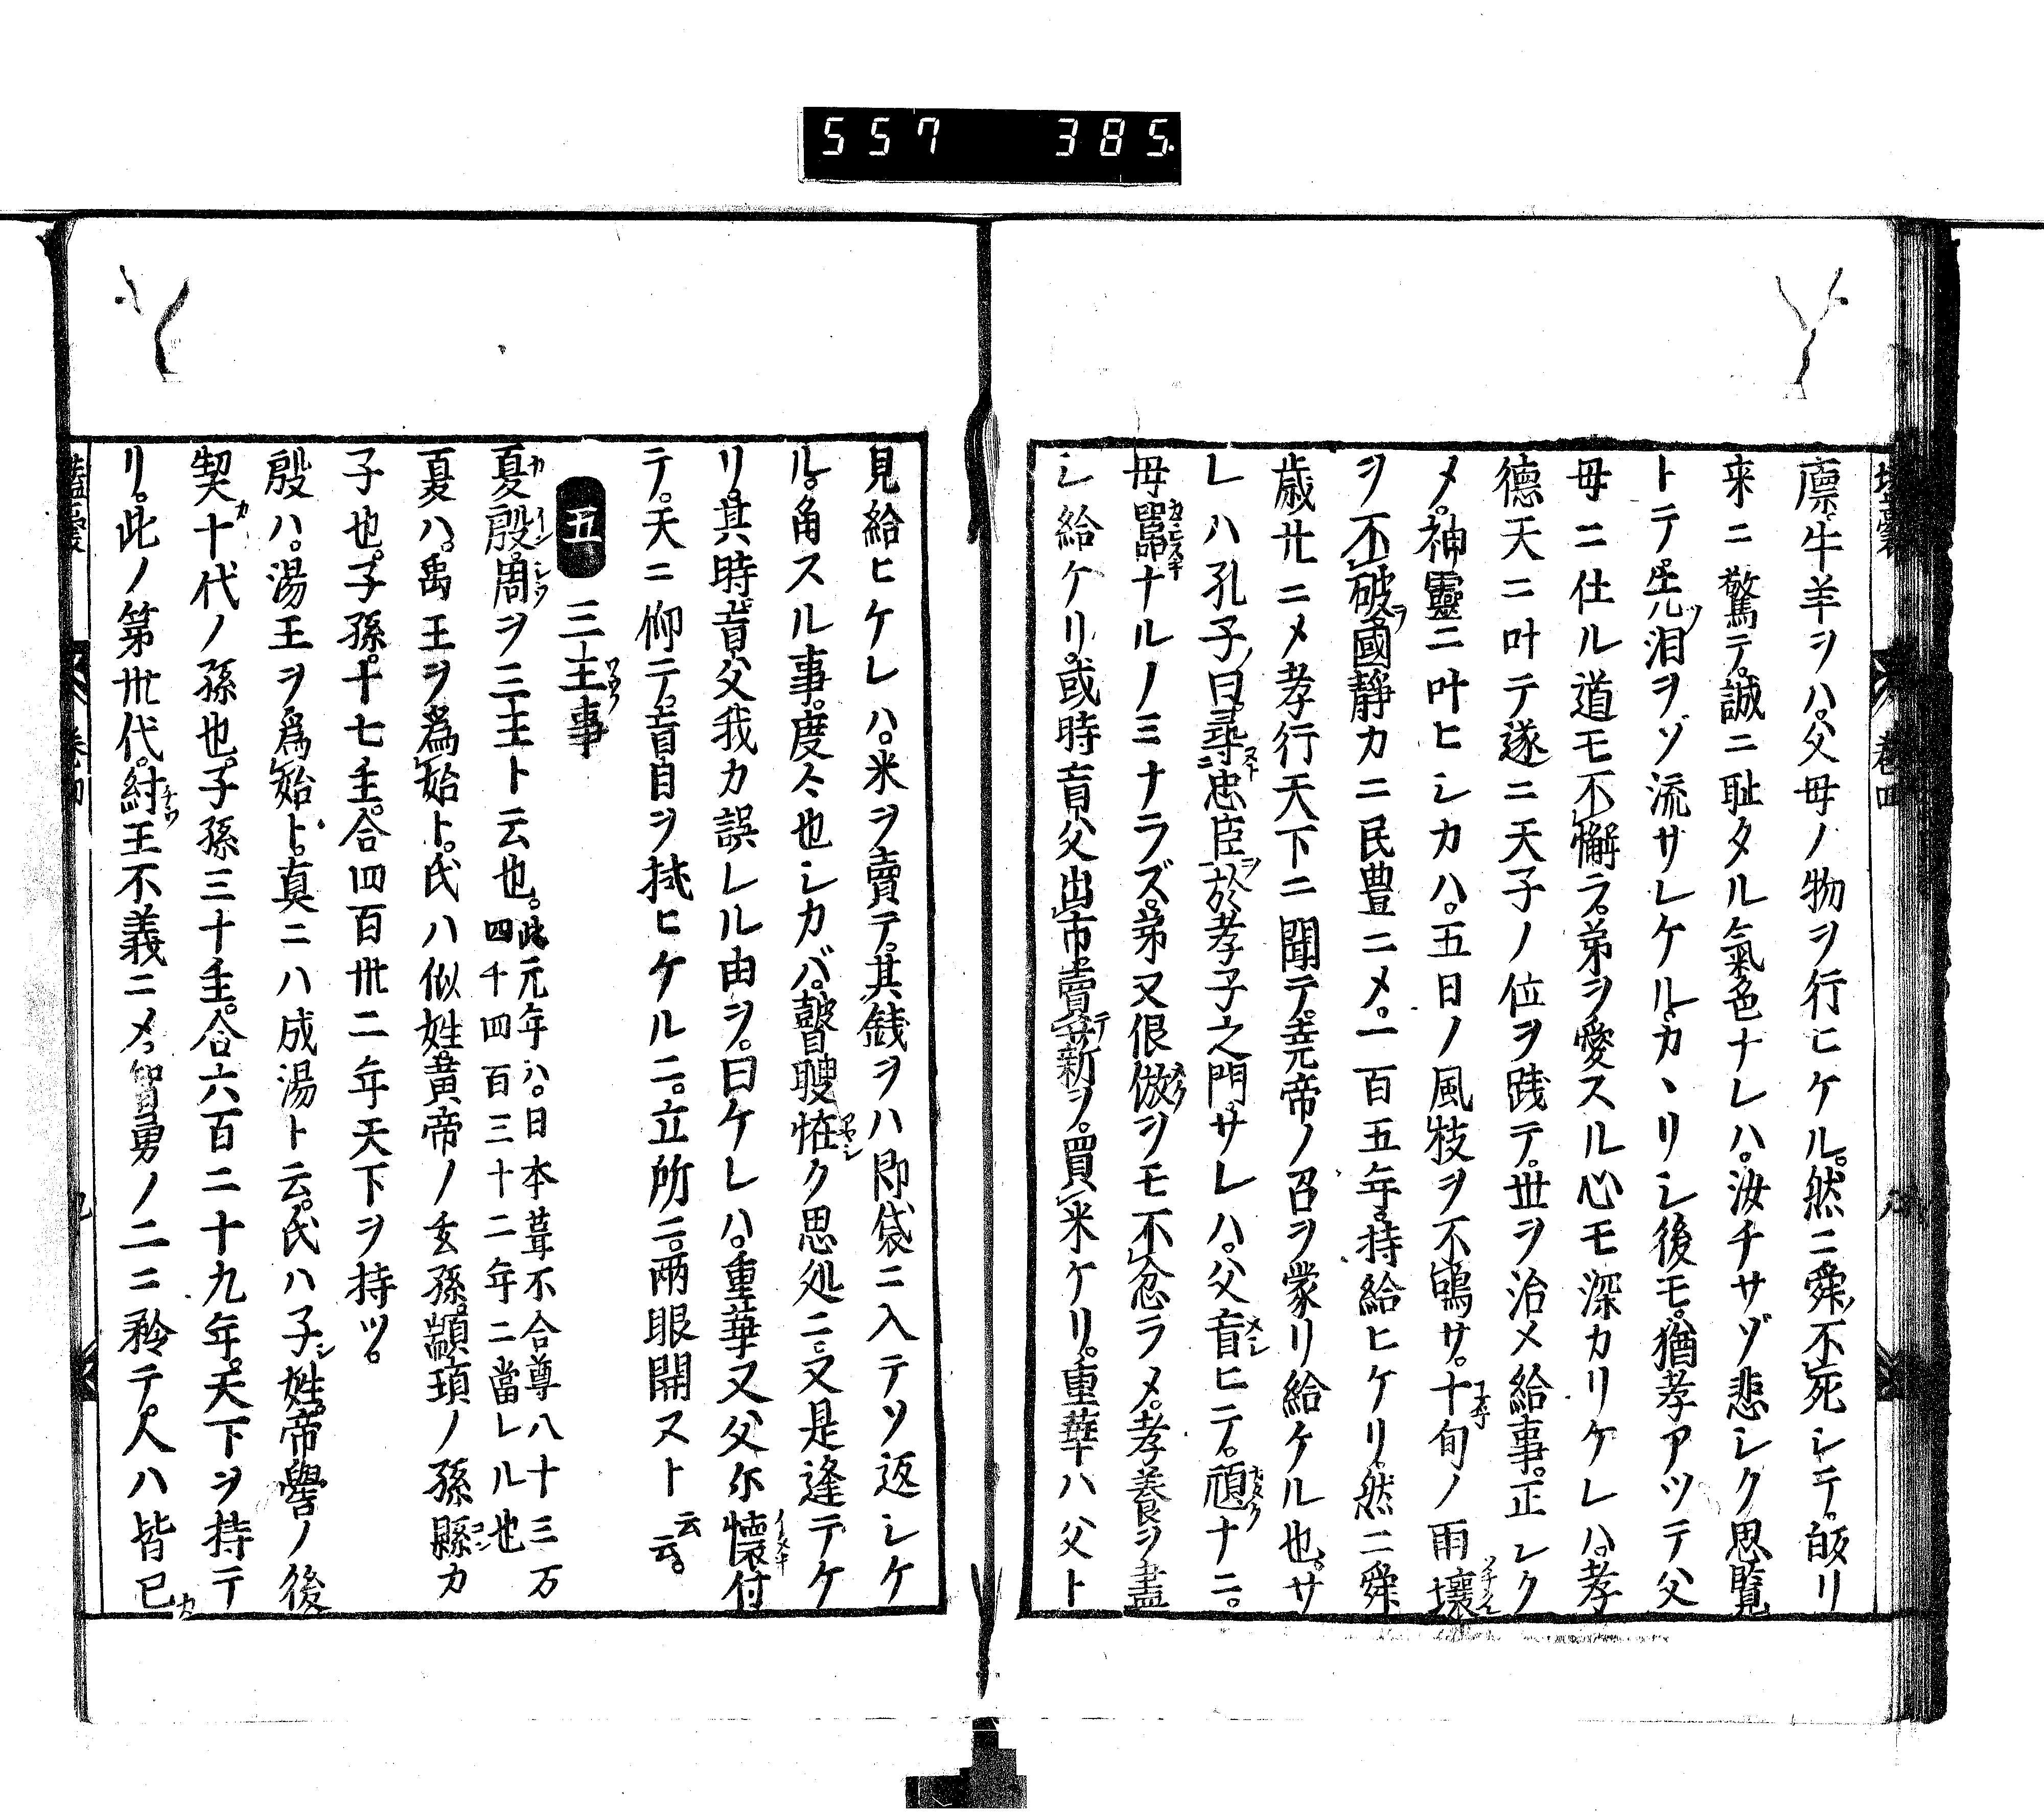 557 385
廪牛羊ヲハ。父母ノ物ヲ行ヒケル。然ニ舜不死シテ。皈リ
来ニ驚テ。誠ニ耻タル氣色ナレハ。汝チサゾ悲シク思覧
トテ。先泪ヲゾ流サレケル。カヽリシ後モ。猶孝アツテ父
母ニ仕ル道モ不懈ラ。弟ヲ愛スル心モ深カリケレハ。孝
德天ニ叶テ遂ニ天子ノ位ヲ践テ。世ヲ治メ給事。正シク
メ。神靈ニ叶ヒシカハ。五日ノ風枝ヲ不鳴サ。十旬ノ雨壤
ヲ不破國靜カニ民豊ニメ。一百五年。持給ヒケリ。然ニ舜
歳廿ニメ孝行天下ニ聞テ。尭帝ノ召ヲ蒙リ給ケル也。サ
レハ孔子ノ曰。尋忠臣於孝子之門。サレハ。父盲ヒニテ。頑ナニ。
母嚚ナルノミナラズ。弟又佷傲ヲモ不忿ラメ。孝養ヲ盡
シ給ケリ。或時盲父出市賣薪ヲ。買米ケリ。重華ハ父ト
見給ヒケレハ。米ヲ賣テ。其銭ヲハ即袋ニ入テソ返シケ
ル。角スル事。度々也シカバ。瞽瞍恠ク思処ニ。又是逢テケ
リ。其時盲父我カ誤レル由ヲ。曰ケレハ。重華又父尓懷付
テ。天ニ仰テ。盲目ヲ拭ヒケルニ。立所ニ。兩眼開ヌト云云。
五 三王事
夏殷周ヲ三王ト云也。此元年ハ。日本葺不合尊八十三万
四千四百三十二年ニ當レル也
夏ハ。禹王ヲ爲始ト。氏ハ似姓。黄帝ノ玄孫。顓頊ノ孫縣カ
子也。子孫。十七主。合四百卅二年天下ヲ持ツ。
殷ハ。湯王ヲ爲始ト。真ニハ成湯ト云。氏ハ子姓。帝嚳ノ後
契十代ノ孫也。子孫三十主。合六百二十九年。天下ヲ持テ
リ。此ノ第卅代。紂王不義ニメ。智勇ノ二ニ矜テ。人ハ皆已